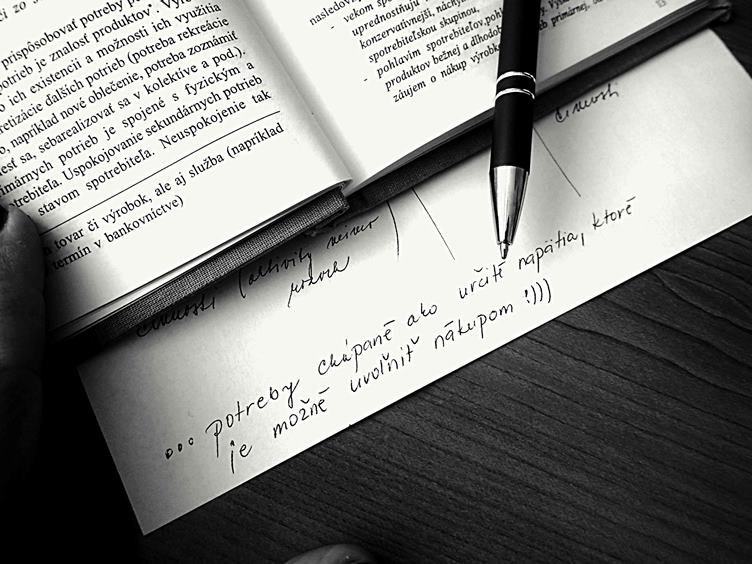 prispôsobovať potreby
potrieb je znalosť produktov". Využitia
o ich existencii a možnosti ich využitia
retizácie ďalších potrieb (potreba rekreácie
o, napríklad nové oblečenie, potreba zoznámiť
niesť sa, sebarealizovať sa v kolektíve a pod.).
rimárnych potrieb je spojené s fyzickým a
trebiteľa. Uspokojovanie sekundárnych potrieb
stavom spotrebiteľa. Neuspokojenie tak
tovar či výrobok, ale aj služba (napríklad
termín v bankovníctve)
nasledov
- vekom
uprednostňujú
konzervatívnej,
spotrebiteľskou skupinou,
- pohlavím spotrebiteľov,
produktov bežnej a dlhodob
záujem o nákup výrobk
činnosti
činnosti (aktivity
... potreby chápané ako určité napätia, ktoré
je možné uvoľniť nákupom :)))